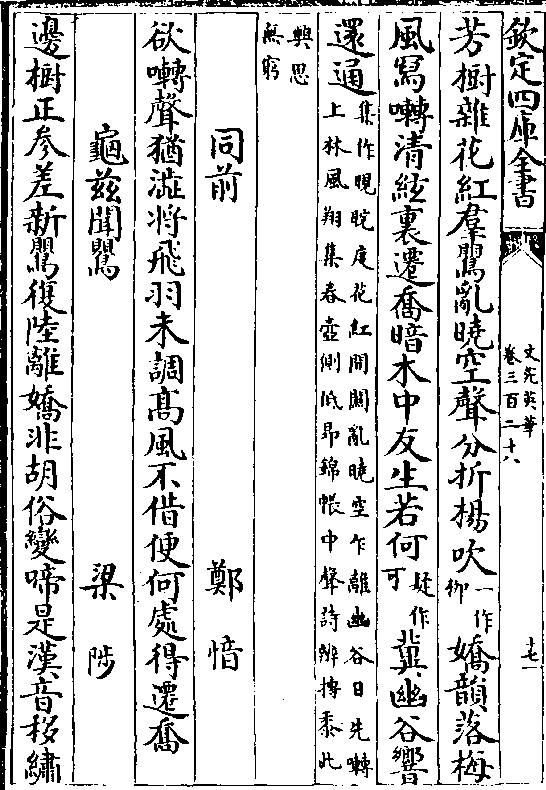 欽定四庫全書
文苑英華
卷三百二十八
十七
芳樹雜花紅羣鸎亂曉空聲分折楊吹一作柳嬌韻落梅
風冩囀清絃裏遷喬暗木中友生若何疑作可冀幽谷響
還通集作睍睆度花紅間關亂曉空乍離幽谷日先囀
上林風翔集春臺側低昻錦帳中聲詩辦搏黍此
興思
無窮
同前
鄭愔
欲囀聲猶澁將飛羽未調高風不借便何處得遷喬
龜兹聞鸎
梁陟
邊樹正參差新鸎復陸離嬌非胡俗變啼是漢音移繡